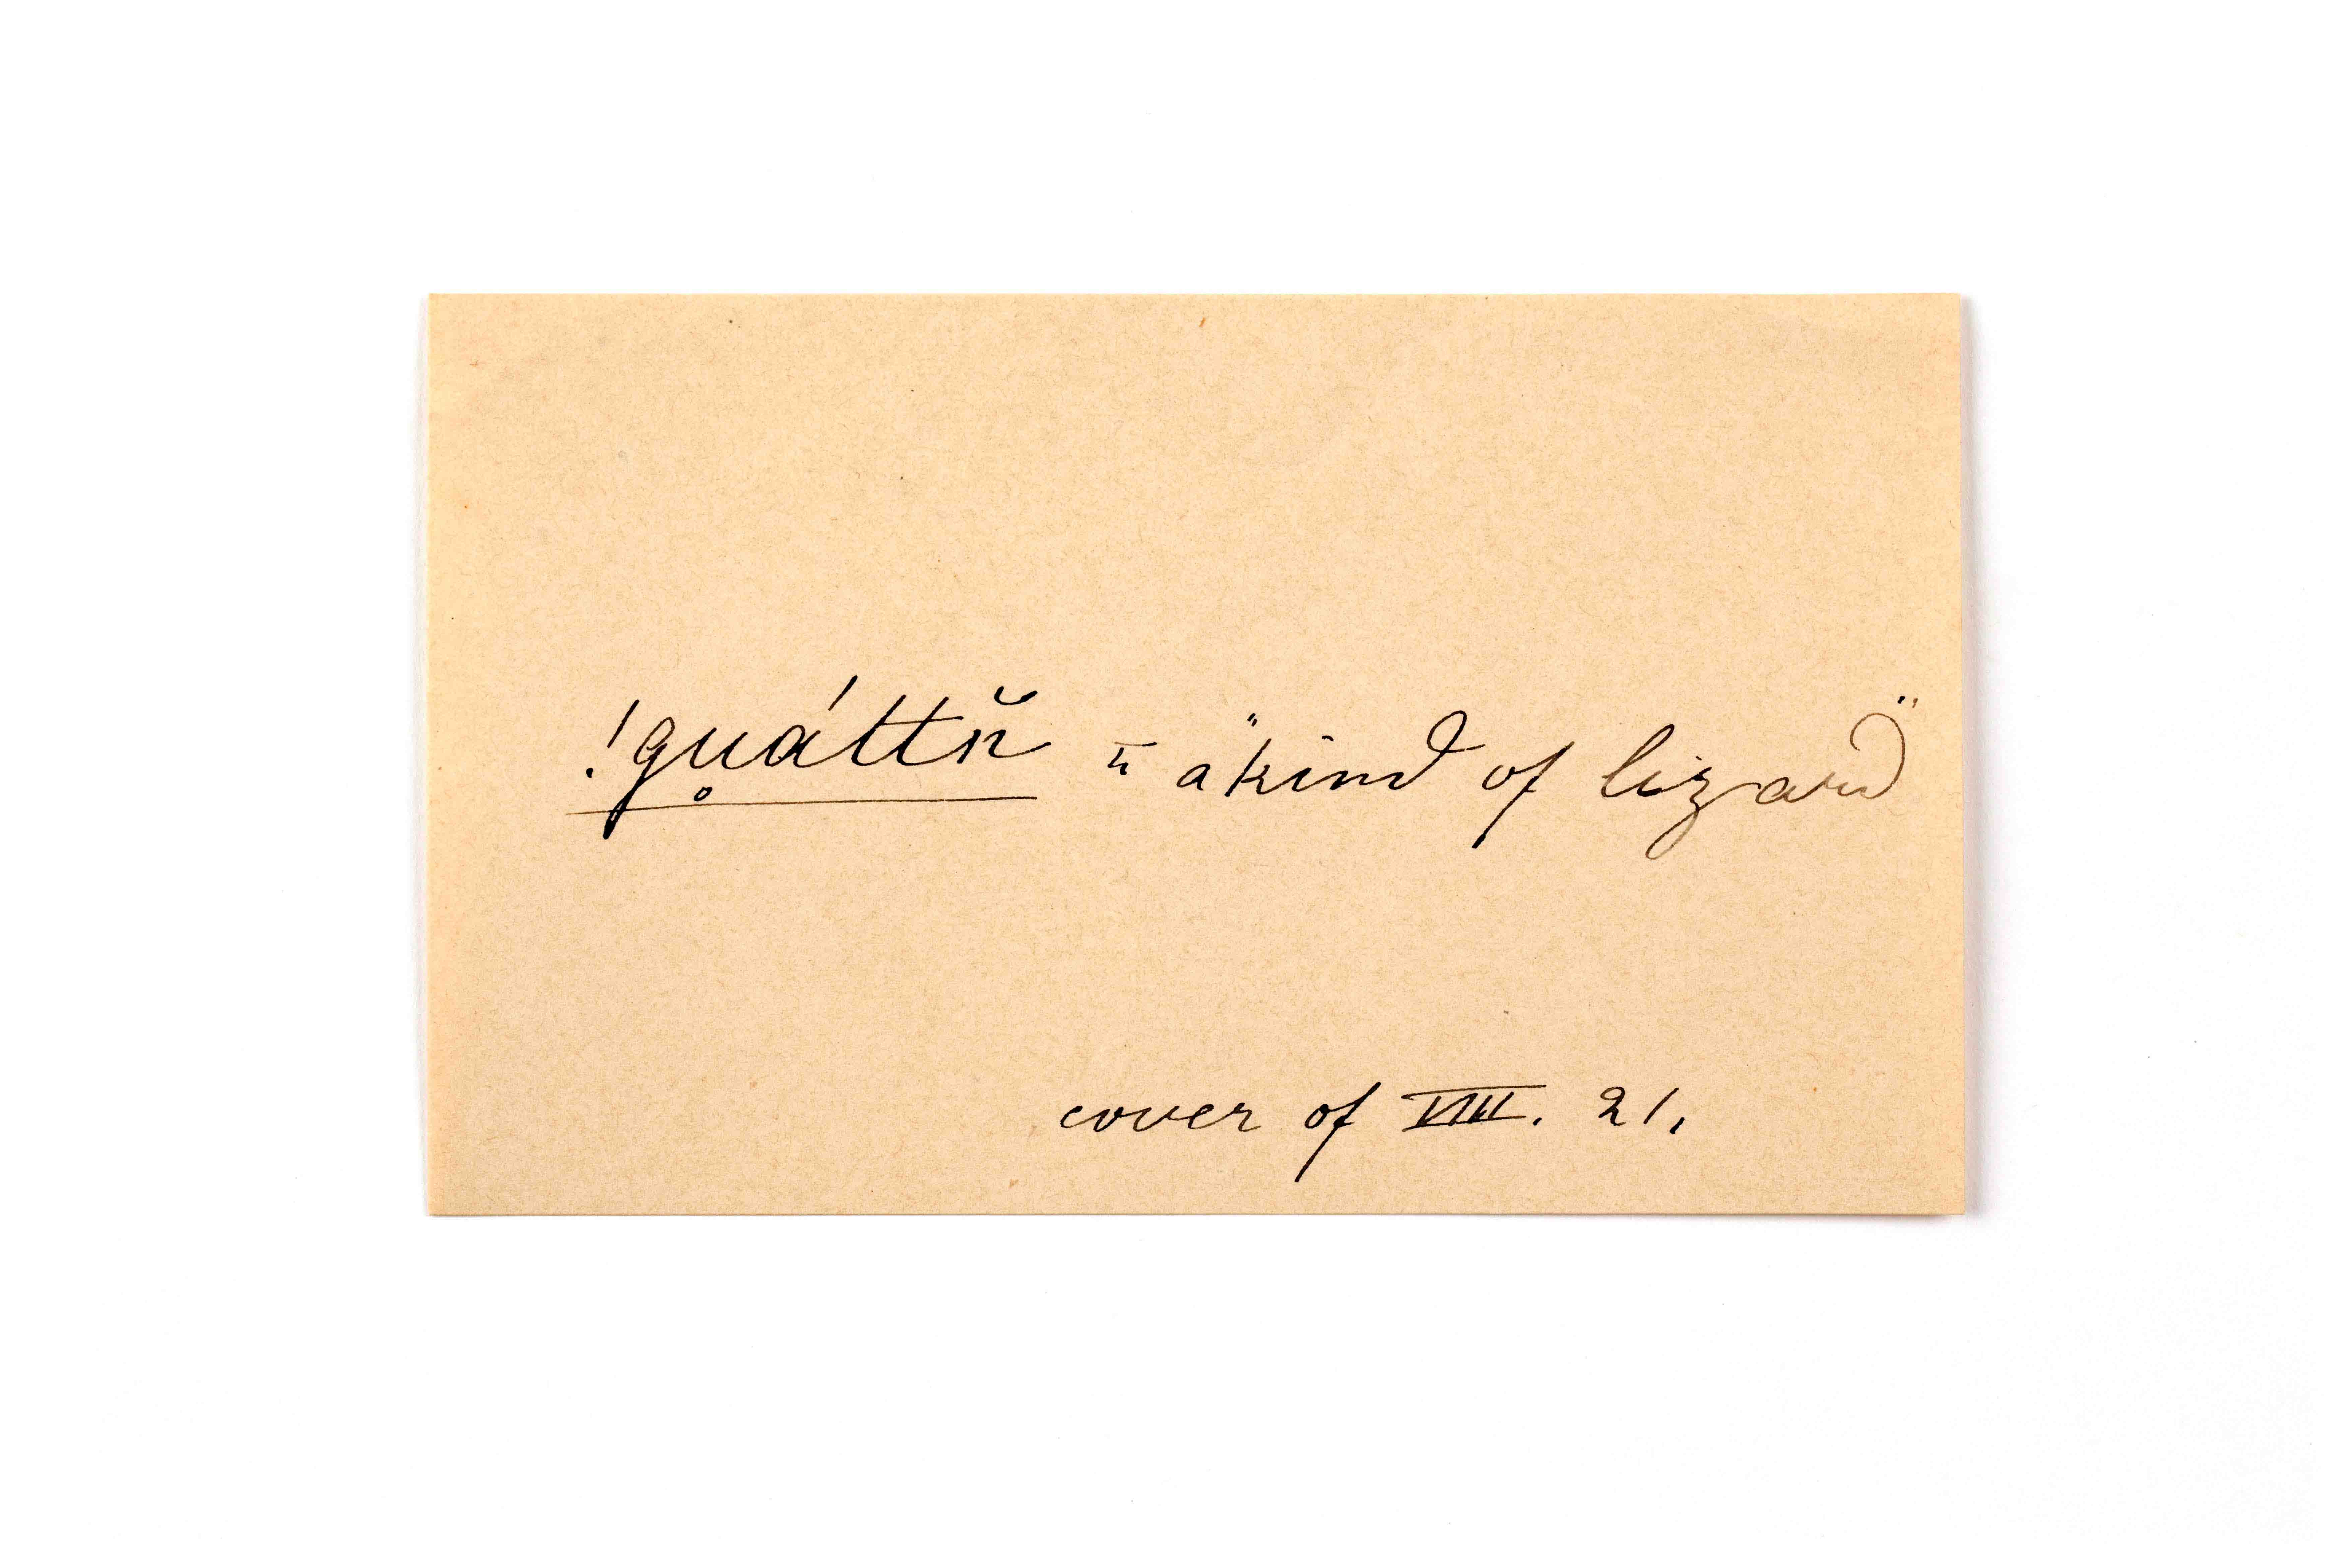 !gu̥áttn̆ = a "kind of lizard"
cover of VIII. 21.